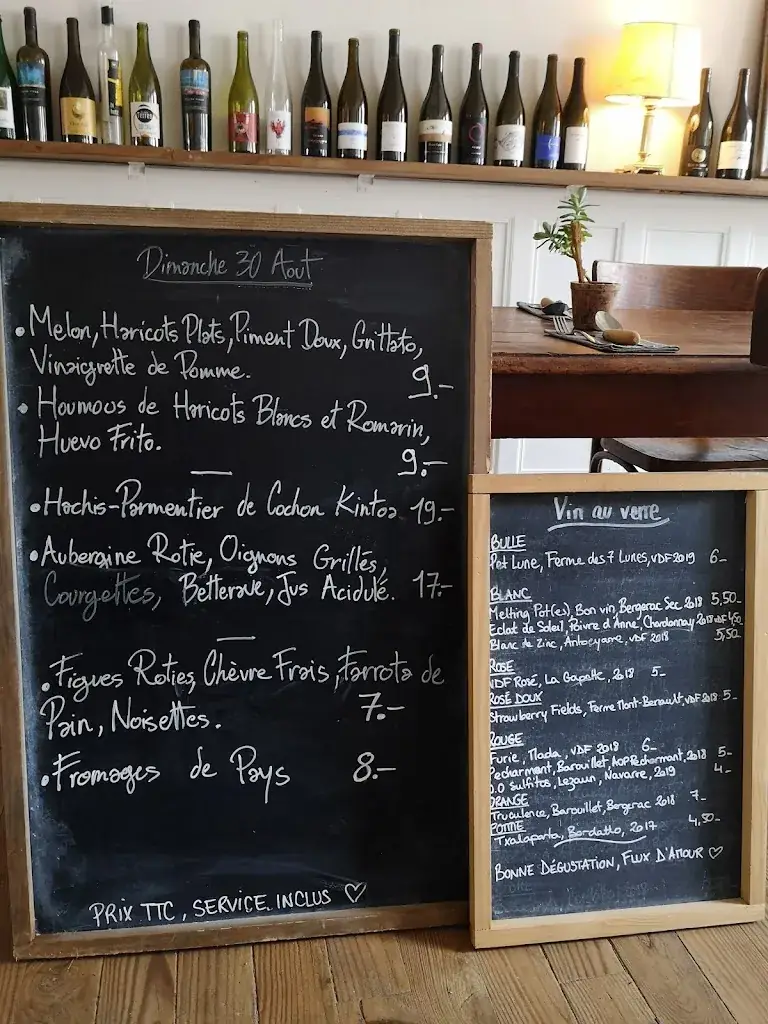 Dimanche 30 Aout
• Melon, Haricots Plats, Piment Doux, Grittato,
Vinaigrette de Pomme.
9.-
• Houmous de Haricots Blancs et Romarin,
Huevo Frito.
9.-
• Hachis-Parmentier de Cochon Kintoa 19.-
• Aubergine Rotie, Oignons Grillés,
Courgettes, Betterave, Jus Acidulé. 17.-
• Figues Roties, Chèvre Frais, Farrota de
Pain, Noisettes. 7.-
• Fromages de Pays 8.-
PRIX TTC, SERVICE INCLUS ♡
Vin au verre
BULLE
Pet Lune, Ferme des 7 Lunes, VDF 2019 6-
BLANC
Melting Pot(es), Bon vin, Bergerac Sec 2018 5,50-
Eclat de Soleil, Poivre d'Anne, Chardonnay 2018 VDF 4,50
Blanc de Zinc, Antocyame, VDF 2018 5,50
ROSE
VDF Rosé, La Gapette, 2018 5-
ROSÉ DOUX
Strawberry Fields, Ferme Mont-Benault, VDF 2018 5-
ROUGE
Furie, Mada, VDF 2018 6-
Pecharmant, Barouillet, AOP Pecharmant, 2018 5-
0.0 Sulfitos, Lezaun, Navarre, 2019 4-
ORANGE
Truculence, Barouillet, Bergerac 2018 7-
POTTTE
Txalaparta, Bordatto, 2017 4,50-
BONNE DÉGUSTATION, FLUX D'AMOUR ♡